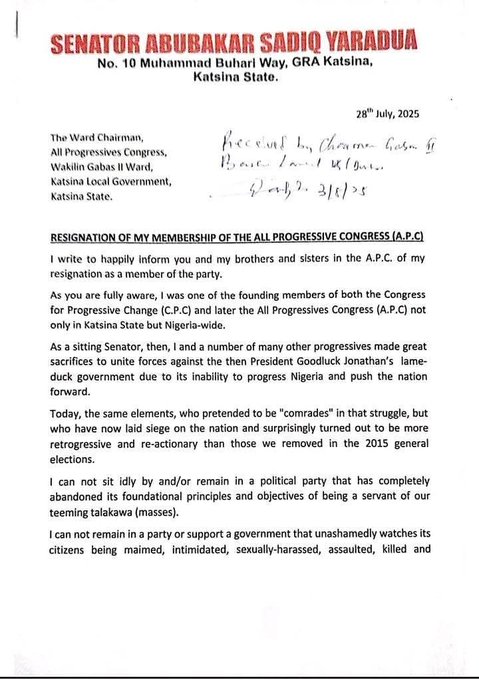 SENATOR ABUBAKAR SADIQ YARADUA
No. 10 Muhammad Buhari Way, GRA Katsina,
Katsina State.
28th July, 2025
The Ward Chairman,
All Progressives Congress,
Wakilin Gabas II Ward,
Katsina Local Government,
Katsina State.
Received by Chairman Gabas II
3/8/25
RESIGNATION OF MY MEMBERSHIP OF THE ALL PROGRESSIVE CONGRESS (A.P.C)
I write to happily inform you and my brothers and sisters in the A.P.C. of my
resignation as a member of the party.
As you are fully aware, I was one of the founding members of both the Congress
for Progressive Change (C.P.C) and later the All Progressives Congress (A.P.C) not
only in Katsina State but Nigeria-wide.
As a sitting Senator, then, I and a number of many other progressives made great
sacrifices to unite forces against the then President Goodluck Jonathan's lame-
duck government due to its inability to progress Nigeria and push the nation
forward.
Today, the same elements, who pretended to be "comrades" in that struggle, but
who have now laid siege on the nation and surprisingly turned out to be more
retrogressive and re-actionary than those we removed in the 2015 general
elections.
I can not sit idly by and/or remain in a political party that has completely
abandoned its foundational principles and objectives of being a servant of our
teeming talakawa (masses).
I can not remain in a party or support a government that unashamedly watches its
citizens being maimed, intimidated, sexually-harassed, assaulted, killed and